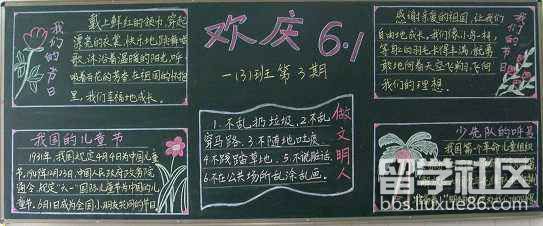 我们的节日
戴上鲜红的领巾,穿起
漂亮的衣裳,快乐地跳舞唱
歌,沐浴着温暖的阳光,呼
吸着百花的芳香,在祖国的怀抱
里,我们幸福地成长。
我国的儿童节
1931年,我国规定4月4日为中国儿童
节,1949年12月23日,中国人民政府政务院
通令,规定"六一"国际儿童节为中国的儿
童节,6月1日成为全国小朋友共同的节日
欢庆6.1
一(3)班 第3期
1.不乱扔垃圾.2.不乱
穿马路.3.不随地吐痰.
4.不践踏草地.5.不说脏话.
6.不在公共场所乱涂乱画.
做文明人
感谢亲爱的祖国,让我们
自由地成长,我们像小鸟一样,
等身上的羽毛长得丰满,就勇
敢地向着天空飞翔,飞向
我们的理想.
我们的节日
少先队的
我国第一个革命儿童组织
留学社区
bbs.liuxue86.com